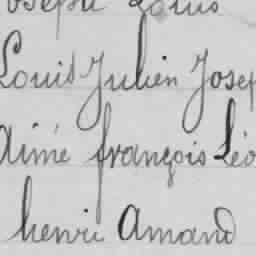 Joseph Louis
Louis Julien Josep
Aimé françois Léo
henri Amand